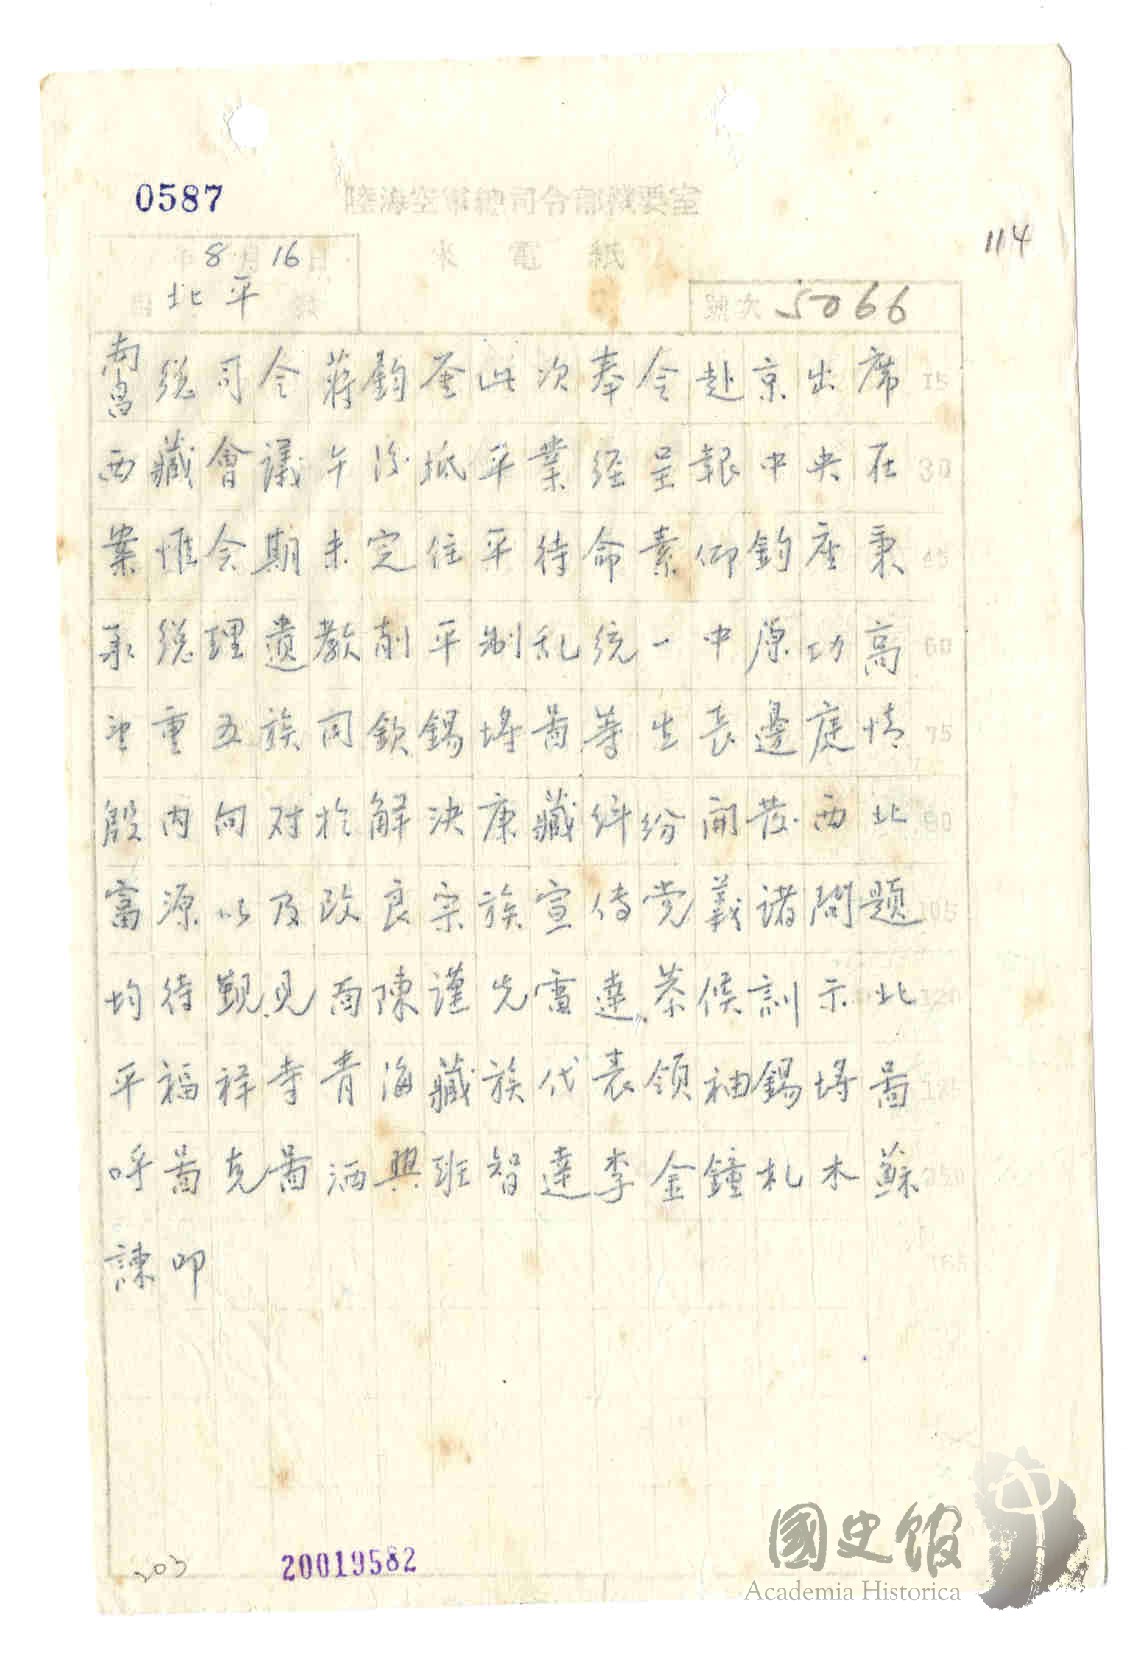 0587
陸海空軍總司令部機要室
114
來電紙
年8月16日
北平
號次 5066
南昌總司令蔣鈞鉴此次奉令赴京出席 15
西藏會議午後抵平業經呈報中央在 30
案惟会期未定住平待命素仰鈞座秉 45
承總理遺教削平制乱統一中原功高 60
望重五族同欽錫埓啚等生長邊庭情 75
殷内向对於解決康藏纠纷開發西北 90
富源以及改良宗族宣传党義諸問題 105
均待觐見面陳谨先電達恭候訓示北 120
平福祥寺青海藏族代表领袖錫埓啚 135
呼啚克啚洒興班智達李金鐘札木蘇 150
諫叩
165
203
20019582
國史館
Academia Historica